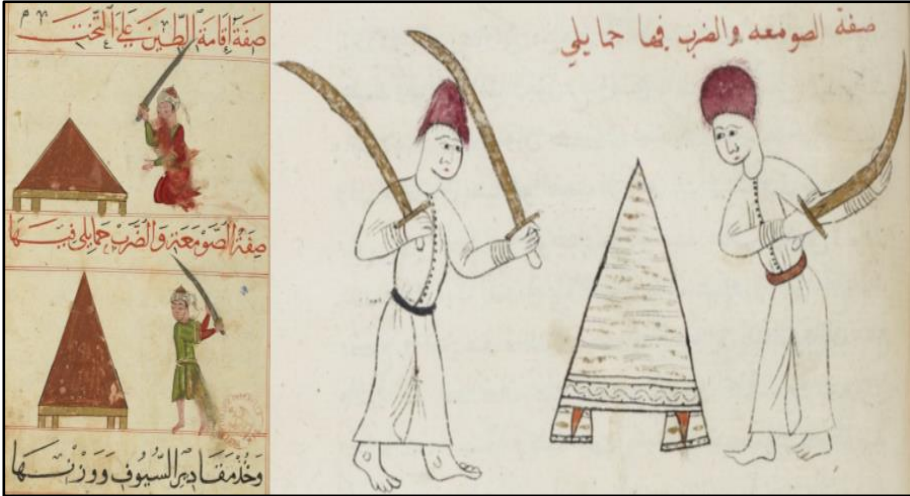 صفة إقامة الطين على التخت
صفة الصومعة والضرب حمايلي فيها
وخذ مقادير السيوف ووزنها
صفة الصومعه والضرب فيها حمايلي